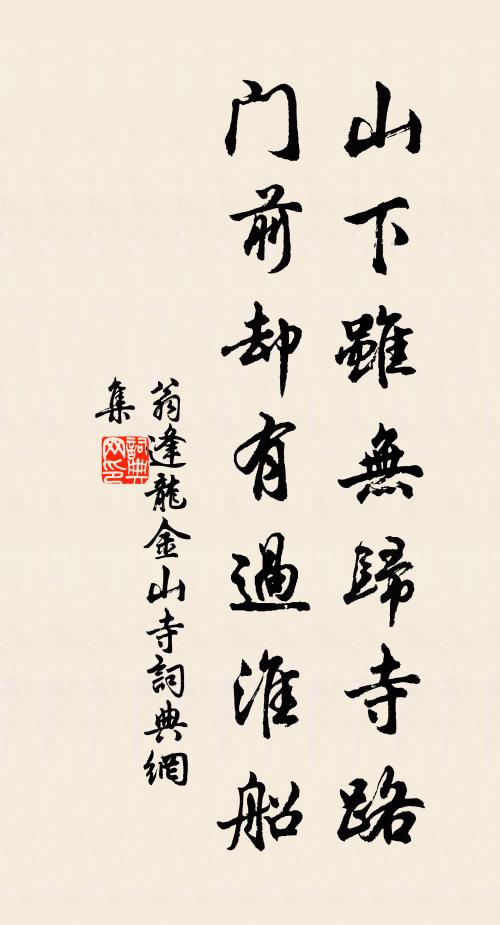 山下雖無歸寺路
門前却有過淮船
翁逢龍金山寺詞典網
集
詞典網印